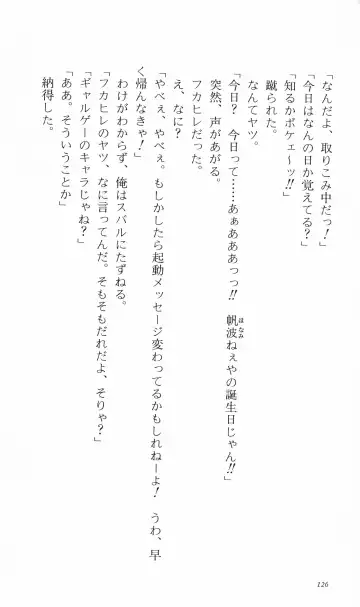 「なんだよ、取りこみ中だっ！」
「今日はなんの日か覚えてる？」
「知るかボケェ～ッ!!」
蹴られた。
なんてヤツ。
「今日？　今日って……あぁあああっっ!!　帆波ねぇやの誕生日じゃん!!」
突然、声があがる。
フカヒレだった。
え、なに？
「やべぇ、やべぇ。もしかしたら起動メッセージ変わってるかもしれねーよ！　うわ、早
く帰んなきゃ！」
わけがわからず、俺はスバルにたずねる。
「フカヒレのヤツ、なに言ってんだ。そもそもだれだよ、そりゃ？」
「ギャルゲーのキャラじゃね？」
「ああ。そういうことか」
納得した。
ほなみ
126